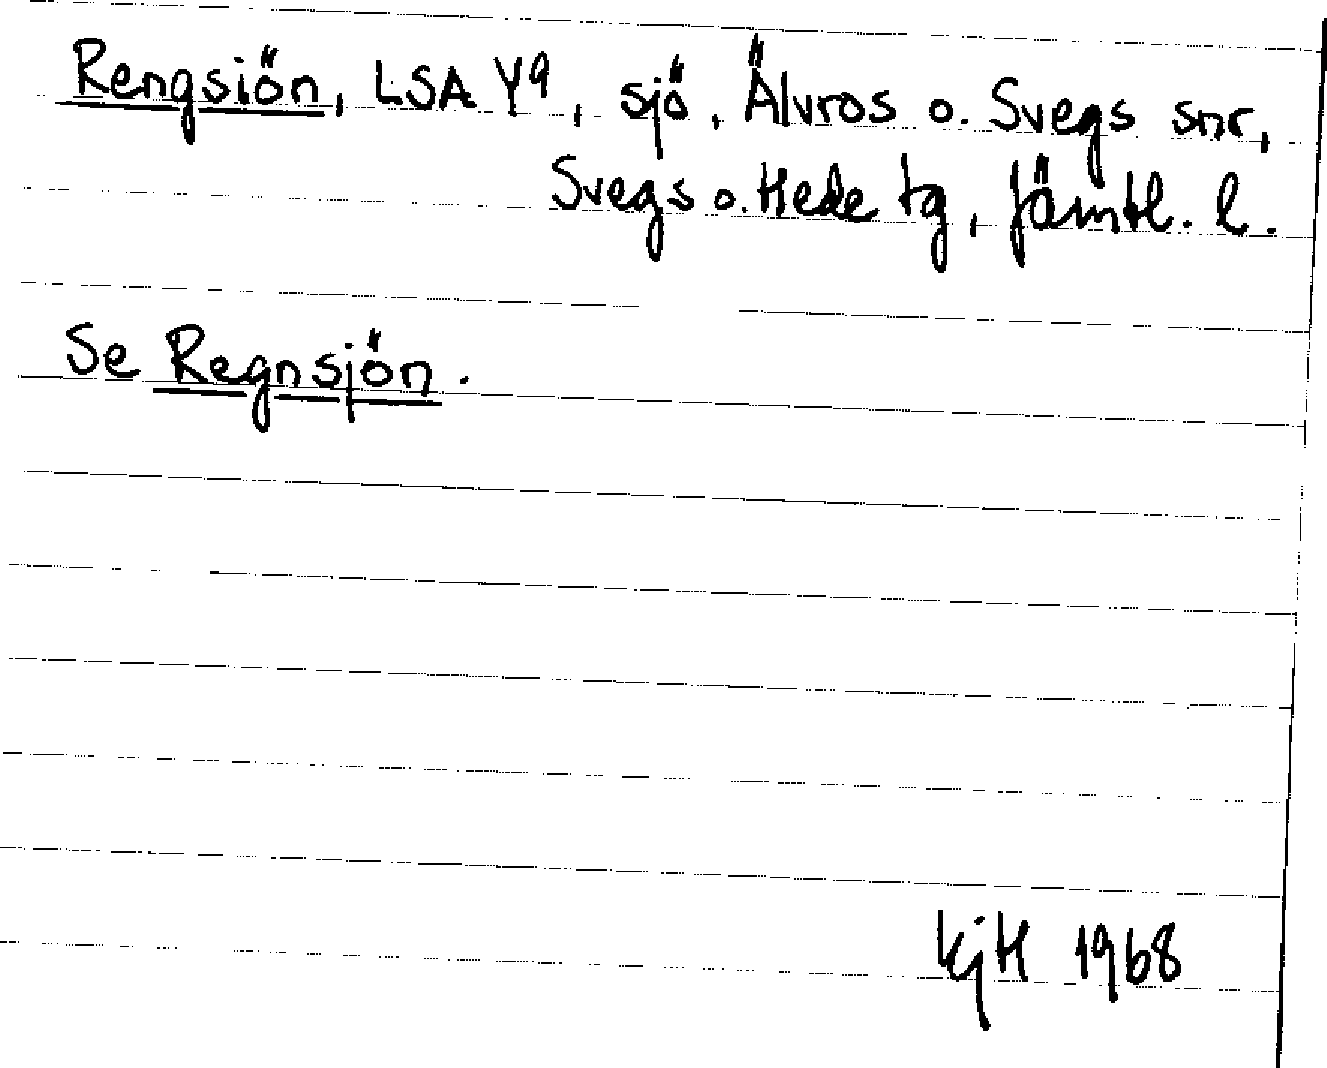 Rengsiön, LSA Y9, sjö, Älvros o. Svegs snr,
Svegs o. Hede tg, Jämtl. l.
Se Regnsjön.
kjH 1968